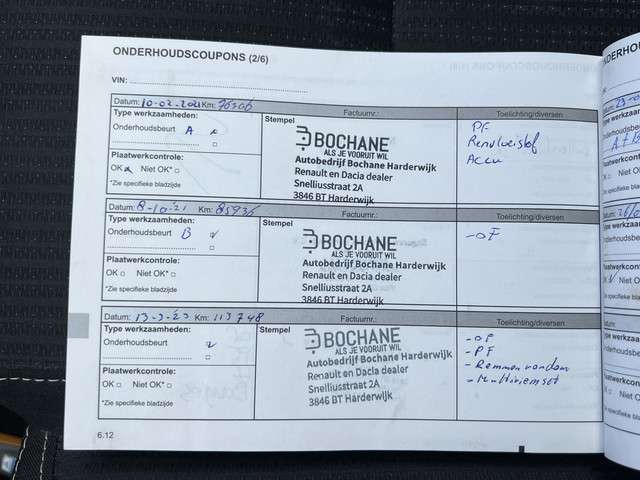 ONDERHOUDSCOUPONS (2/6)
VIN:
Datum: 10-02-2021 Km: 76306
Factuurnr.:
Toelichting/diversen
Type werkzaamheden:
Onderhoudsbeurt A
Plaatwerkcontrole:
OK Niet OK*
*Zie specifieke bladzijde
Stempel
BOCHANE
ALS JE VOORUIT WIL
Autobedrijf Bochane Harderwijk
Renault en Dacia dealer
Snelliusstraat 2A
3846 BT Harderwijk
PF
Remvloeistof
Accu
Datum: 8-10-'21 Km: 85935
Factuurnr.:
Toelichting/diversen
Type werkzaamheden:
Onderhoudsbeurt B
Plaatwerkcontrole:
OK Niet OK*
*Zie specifieke bladzijde
Stempel
BOCHANE
ALS JE VOORUIT WIL
Autobedrijf Bochane Harderwijk
Renault en Dacia dealer
Snelliusstraat 2A
3846 BT Harderwijk
-OF
Datum: 13-3-23 Km: 113748
Factuurnr.:
Toelichting/diversen
Type werkzaamheden:
Onderhoudsbeurt
Plaatwerkcontrole:
OK Niet OK*
*Zie specifieke bladzijde
Stempel
BOCHANE
ALS JE VOORUIT WIL
Autobedrijf Bochane Harderwijk
Renault en Dacia dealer
Snelliusstraat 2A
3846 BT Harderwijk
-OF
-PF
-Remmen rondom
-Multiriemset
6.12